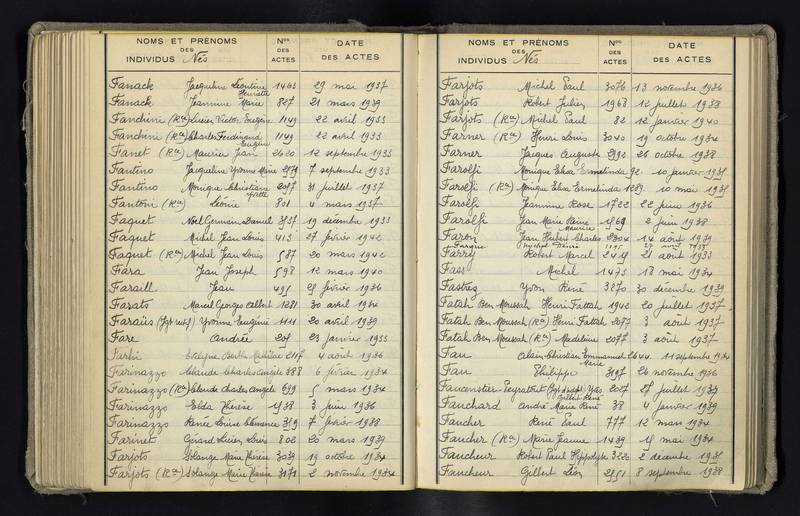 NOMS ET PRÉNOMS
DES
INDIVIDUS Nés
Nos
DES
ACTES
DATE
DES ACTES
Fanack Jacqueline Léontine Henriette 1463 29 mai 1937
Fanack Jeannine Marie 807 21 mars 1939
Fanchini (Rce) Lucien Victor Eugène 1149 22 avril 1933
Fanchini (Rce) Charles Ferdinand Eugène 1149 22 avril 1933
Fanet (Rce) Maurice Jean 2620 12 septembre 1933
Fantino Jacqueline Yvonne Marie 2579 7 septembre 1933
Fantino Monique Christiane Yvette 2057 31 juillet 1937
Fantoni (Rce) Léonie 801 4 mars 1937
Faquet Noël Germain Daniel 3537 19 décembre 1933
Faquet Michel Jean Louis 413 27 février 1942
Faquet (Rce) Michel Jean Louis 587 20 mars 1942
Fara Jean Joseph 598 12 mars 1940
Faraill Jean 495 25 février 1936
Farats Marcel Georges Calbert 1281 30 avril 1934
Faraüs Yvonne Eugénie 1111 20 avril 1939
Fare Andrée 205 23 janvier 1933
Farhi 2117 4 août 1936
Farinazzo Claude Charles Angèle 388 6 février 1934
Farinazzo (Rce) Claude Charles Angèle 659 5 mars 1934
Farinazzo Elda Thérèse 1538 3 juin 1936
Farinazzo Renée Louise Clémence 359 7 février 1938
Farinet Gérard Lucien Louis 802 20 mars 1939
Farjots Solange Marie Thérèse 3039 19 octobre 1934
Farjots (Rce) Solange Marie Thérèse 3171 2 novembre 1934
NOMS ET PRÉNOMS
DES
INDIVIDUS Nés
Nos
DES
ACTES
DATE
DES ACTES
Farjots Michel Paul 3076 13 novembre 1936
Farjots Robert Julien 1968 12 juillet 1938
Farjots (Rce) Michel Paul 82 12 janvier 1940
Farner (Rce) Henri Louis 3040 19 octobre 1934
Farner Jacques Auguste 2992 26 octobre 1938
Farolfi Monique Elisa Ermelinda 92 10 janvier 1935
Farolfi (Rce) Monique Elisa Ermelinda 1289 10 mai 1935
Farolfi Jeannine Rose 1722 22 juin 1936
Farolfi Jean Marie Reine 1569 2 juin 1938
Faron Jean Hubert Charles Maurice 2304 14 août 1939
Farque 27 avril
Farry Robert Marcel 2419 21 août 1933
Fass Michel 1473 18 mai 1934
Fastrez Yvon René 3270 30 décembre 1939
Fatah Ben Moussah Henri Fattah 1942 20 juillet 1937
Fatah Ben Moussah (Rce) Henri Fattah 2077 3 août 1937
Fatah Ben Moussah (Rce) Madeleine 2077 3 août 1937
Fau Alain Christian Emmanuel Marie 2644 11 septembre 1934
Fau Philippe 3197 26 novembre 1936
Fauconstier-Peyratout Yves Gilbert René 2017 27 juillet 1937
Fauchard André Marie René 38 4 janvier 1939
Faucher René Paul 777 12 mars 1934
Faucher (Rce) Marie Jeanne 1439 15 mai 1934
Faucheur Robert Paul Hippolyte 3220 2 décembre 1935
Faucheur Gilbert Léon 2551 8 septembre 1938